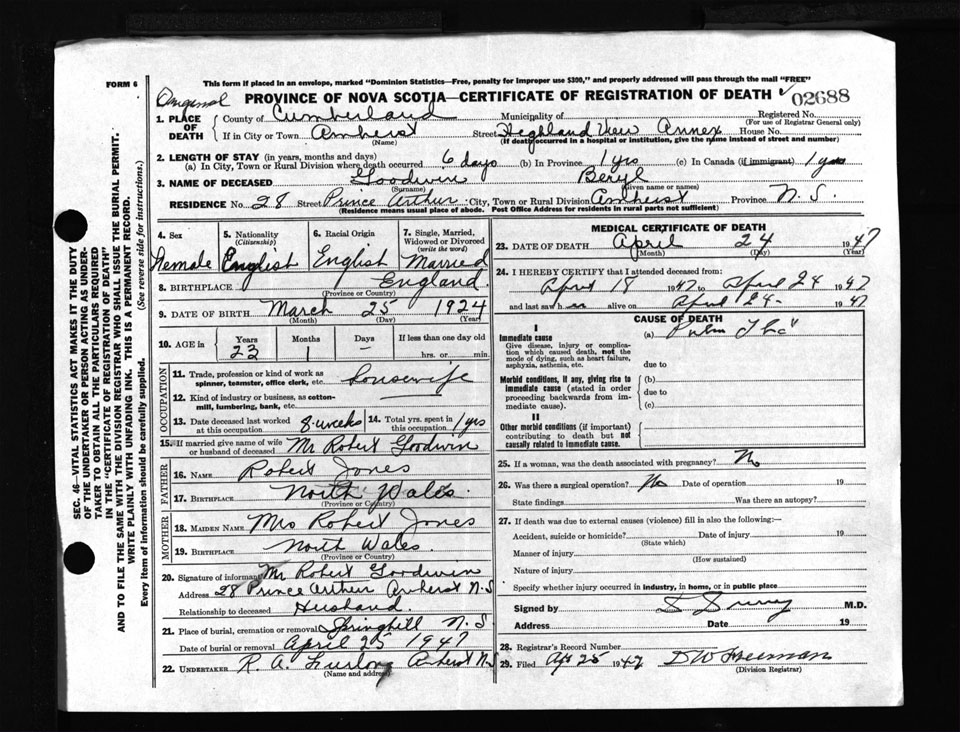 This form if placed in an envelope, marked "Dominion Statistics—Free, penalty for improper use $300," and properly addressed will pass through the mail "FREE"
FORM 6
Original
PROVINCE OF NOVA SCOTIA—CERTIFICATE OF REGISTRATION OF DEATH
02688
1. PLACE OF DEATH
County of Cumberland Municipality of Registered No.
(For use of Registrar General only)
If in City or Town Amherst Street Highland View Annex House No.
(Name) (If death occurred in a hospital or institution, give the name instead of street and number)
2. LENGTH OF STAY (in years, months and days)
(a) In City, Town or Rural Division where death occurred 6 days (b) In Province 1 yrs (c) In Canada (if immigrant) 1 yrs
3. NAME OF DECEASED Goodwin Beryl
(Surname) (Given name or names)
RESIDENCE No. 28 Street Prince Arthur City, Town or Rural Division Amherst Province N.S.
(Residence means usual place of abode. Post Office Address for residents in rural parts not sufficient)
4. Sex 5. Nationality (Citizenship) 6. Racial Origin 7. Single, Married, Widowed or Divorced (write the word)
Female English English Married
8. BIRTHPLACE England
(Province or Country)
9. DATE OF BIRTH March 25 1924
(Month) (Day) (Year)
10. AGE in Years Months Days If less than one day old
23 1 – hrs. or min.
OCCUPATION
11. Trade, profession or kind of work as spinner, teamster, office clerk, etc. housewife
12. Kind of industry or business, as cotton-mill, lumbering, bank, etc.
13. Date deceased last worked at this occupation 8 weeks 14. Total yrs. spent in this occupation 1 yrs
15. If married give name of wife or husband of deceased Mr Robert Goodwin
FATHER
16. NAME Robert Jones
17. BIRTHPLACE North Wales
(Province or Country)
MOTHER
18. MAIDEN NAME Mrs Robert Jones
19. BIRTHPLACE North Wales.
(Province or Country)
20. Signature of informant Mr Robert Goodwin
Address 28 Prince Arthur Amherst N.S
Relationship to deceased Husband.
21. Place of burial, cremation or removal Springhill N.S.
Date of burial or removal April 25 1947
22. UNDERTAKER R. A. Furlong Amherst N.S
(Name and address)
MEDICAL CERTIFICATE OF DEATH
23. DATE OF DEATH April 24 1947
(Month) (Day) (Year)
24. I HEREBY CERTIFY that I attended deceased from:
April 18 1947 to April 24 1947
and last saw her alive on April 24 - 1947
CAUSE OF DEATH
I
Immediate cause
Give disease, injury or complication which caused death, not the mode of dying, such as heart failure, asphyxia, asthenia, etc.
(a) Pulm Tbc
due to
Morbid conditions, if any, giving rise to immediate cause (stated in order proceeding backwards from immediate cause)
(b)
due to
(c)
II
Other morbid conditions (if important) contributing to death but not causally related to immediate cause.
25. If a woman, was the death associated with pregnancy? No
26. Was there a surgical operation? No Date of operation 19
State findings Was there an autopsy?
27. If death was due to external causes (violence) fill in also the following:—
Accident, suicide or homicide? Date of injury 19
(State which)
Manner of injury
(How sustained)
Nature of injury
Specify whether injury occurred in industry, in home, or in public place
Signed by M.D.
Address Date 19
28. Registrar's Record Number
29. Filed Apr 25 1947 D W Freeman
(Division Registrar)
SEC. 46—VITAL STATISTICS ACT MAKES IT THE DUTY
OF THE UNDERTAKER OR PERSON ACTING AS UNDER-
TAKER TO OBTAIN ALL THE PARTICULARS REQUIRED
IN THE "CERTIFICATE OF REGISTRATION OF DEATH"
AND TO FILE THE SAME WITH THE DIVISION REGISTRAR WHO SHALL ISSUE THE BURIAL PERMIT.
WRITE PLAINLY WITH UNFADING INK. THIS IS A PERMANENT RECORD.
Every item of information should be carefully supplied. (See reverse side for instructions.)